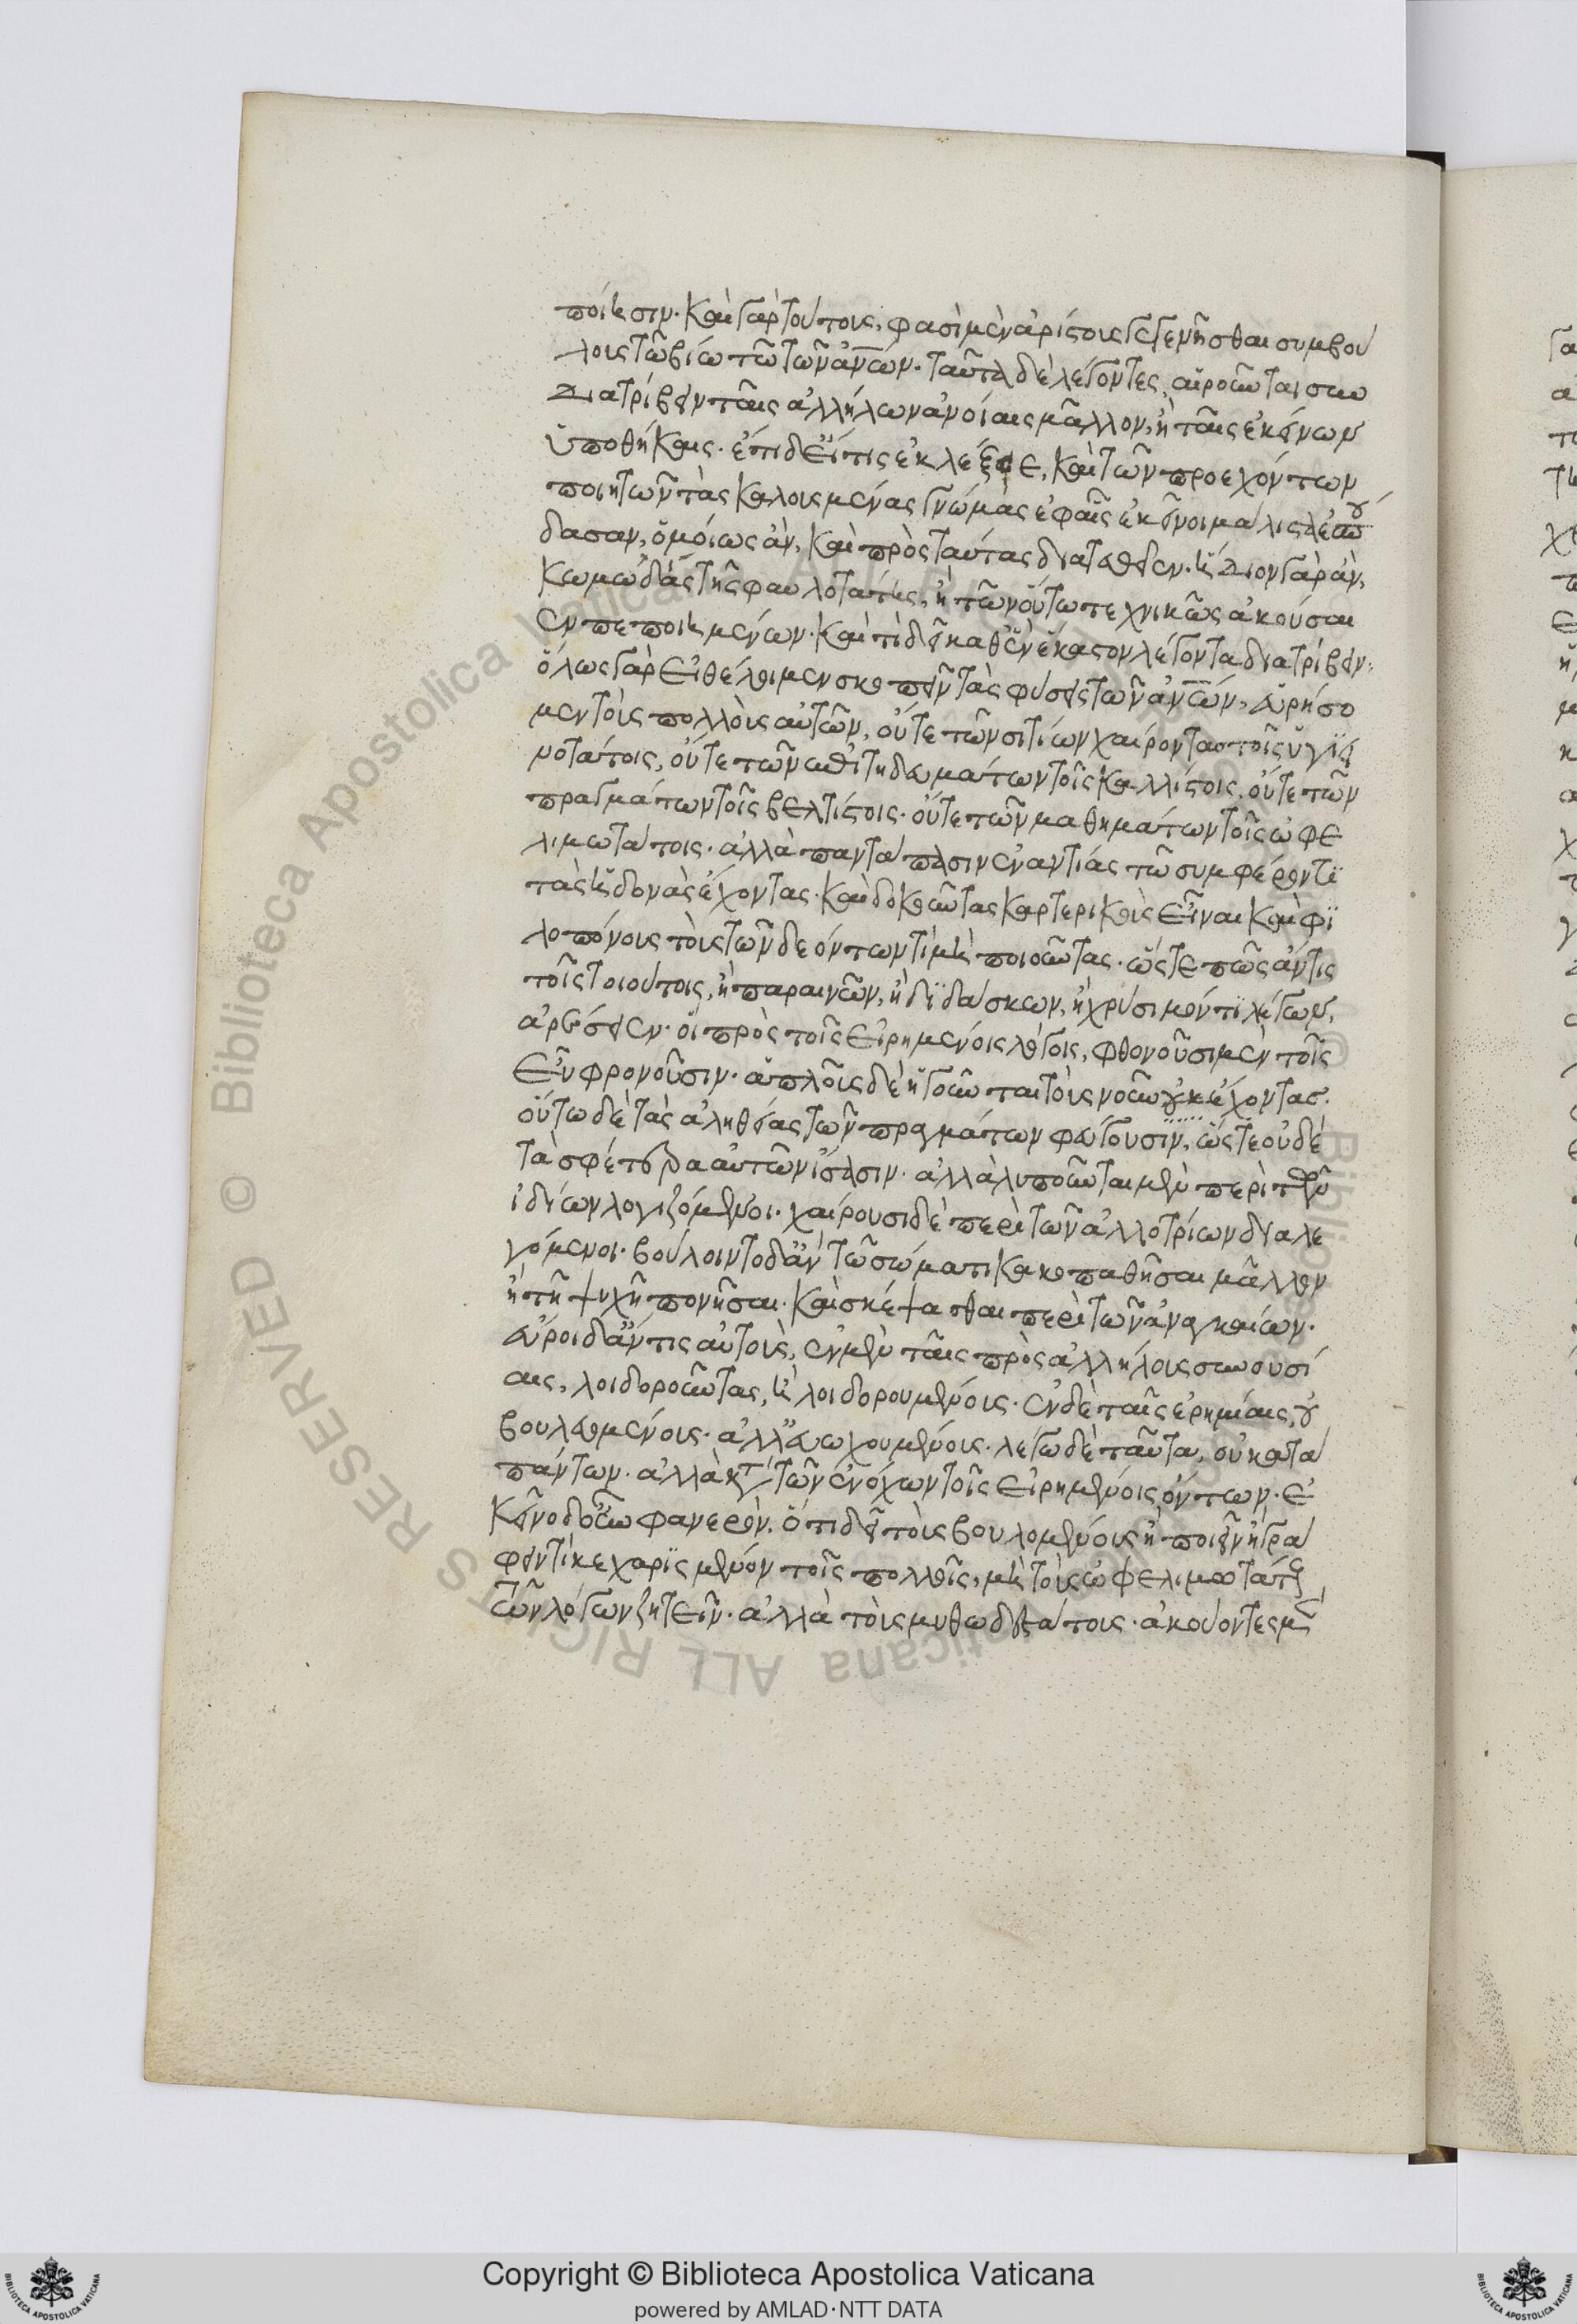 ποίησιν· καὶ γὰρ τούτους, φασὶ μὲν ἀρίστους γεγενῆσθαι συμβού
λους τῶ βίω τῶ τῶν ἀν̅ων· ταῦτα δὲ λέγοντες, αἱροῦνται συν
διατρίβειν ταῖς ἀλλήλων ἀνοίαις μᾶλλον, ἢ ταῖς ἐκείνων
ὑποθήκαις· ἔτι δ' εἴ τις ἐκλέξειε, καὶ τῶν προεχόντων
ποιητῶν τὰς καλουμένας γνώμας ἐφ' αἷς ἐκεῖνοι μάλιστ' ἐσπού
δασαν, ὁμοίως ἂν, καὶ πρὸς ταύτας διατεθεῖεν· ἥδιον γὰρ ἂν,
κωμωδίας τῆς φαυλοτάτης, ἢ τῶν οὕτω τεχνικῶς ἀκούσαι
εν πεποιημένων· καὶ τί δεῖ καθ' ἓν ἕκαστον λέγοντα διατρίβειν·
ὅλως γὰρ εἰ θέλοιμεν σκοπεῖν τὰς φύσεις τῶν ἀν̅ων, εὑρήσο
μεν τοὺς πολλοὺς αὐτῶν, οὔτε τῶν σιτίων χαίροντας τοῖς ὑγιει
νοτάτοις, οὔτε τῶν ἐπιτηδευμάτων τοῖς καλλίστοις. οὔτε τῶν
πραγμάτων τοῖς βελτίστοις· οὔτε τῶν μαθημάτων τοῖς ὠφε
λιμωτάτοις· ἀλλὰ παντάπασιν ἐναντίας τῶ συμφέροντι
τὰς ἡδονὰς ἔχοντας· καὶ δοκοῦντας καρτερικοὺς εἶναι καὶ φι
λοπόνους τοὺς τῶν δεόντων τὶ μὴ ποιοῦντας· ὥστε πῶς ἄν τις
τοῖς τοιούτοις, ἢ παραινῶν, ἢ διδάσκων, ἢ χρήσιμόν τι λέγων,
ἀρέσειεν· οἳ πρὸς τοῖς εἰρημένοις λόγοις, φθονοῦσι μὲν τοῖς
εὖ φρονοῦσιν· ἁπλοῦς δὲ ἡγοῦνται τοὺς νοῦν οὐκ ἔχοντας.
οὕτω δὲ τὰς ἀληθείας τῶν πραγμάτων φεύγουσιν, ὥστε οὐδὲ
τὰ σφέτερα αὐτῶν ἴσασιν· ἀλλὰ λυποῦνται μὲν περὶ τῶν
ἰδίων λογιζόμενοι· χαίρουσι δὲ περὶ τῶν ἀλλοτρίων διαλε
γόμενοι· βούλοιντο δ' ἂν τῶ σώματι κακοπαθῆσαι μᾶλλον
ἢ τῆ ψυχῆ πονῆσαι· καὶ σκέψασθαι περὶ τῶν ἀναγκαίων·
εὕροι δ' ἄν τις αὐτοὺς, ἐν μὲν ταῖς πρὸς ἀλλήλους συνουσί
αις, λοιδοροῦντας, ἢ λοιδορουμένους· ἐν δὲ ταῖς ἐρημίαις, οὐ
βουλευομένους· ἀλλ' εὐχομένους· λέγω δὲ ταῦτα, οὐ κατὰ
πάντων· ἀλλὰ κατὰ τῶν ἐνόχων τοῖς εἰρημένοις ὄντων· ἐ
κεῖνο δ' οὖν φανερὸν, ὅτι δεῖ τοὺς βουλομένους ἢ ποιεῖν ἢ γρά
φειν τὶ κεχαρισμένον τοῖς πολλοῖς, μὴ τοὺς ὠφελιμωτάτους
τῶν λόγων ζητεῖν· ἀλλὰ τοὺς μυθωδεστάτους· ἀκούοντες μὲν